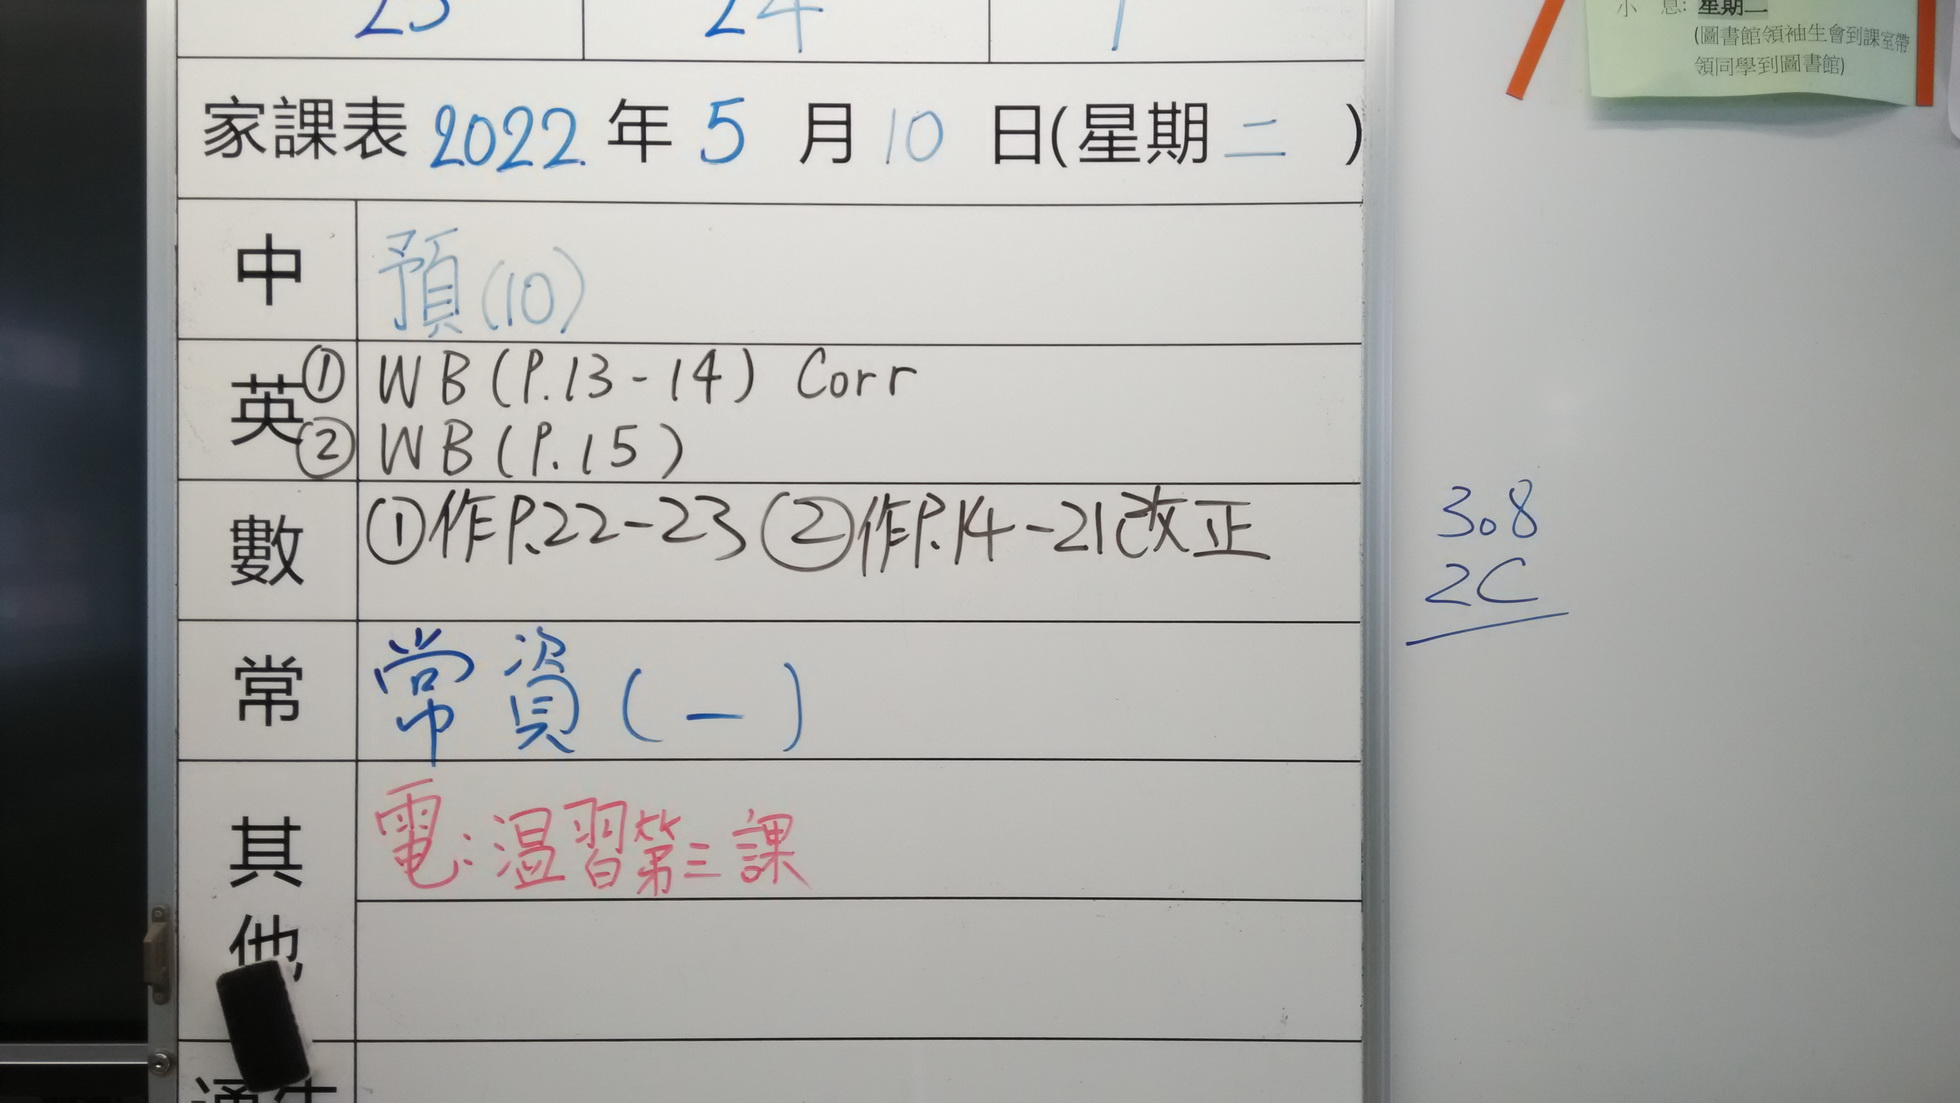 23 24 1
小 息: 星期二
(圖書館領袖生會到課室帶
領同學到圖書館)
家課表 2022 年 5 月 10 日(星期 二 )
中 預(10)
英 ① WB(P.13-14) Corr
② WB(P.15)
數 ①作P.22-23 ②作P.14-21改正
常 常資(一)
其他 電:温習第三課
3.8
2C